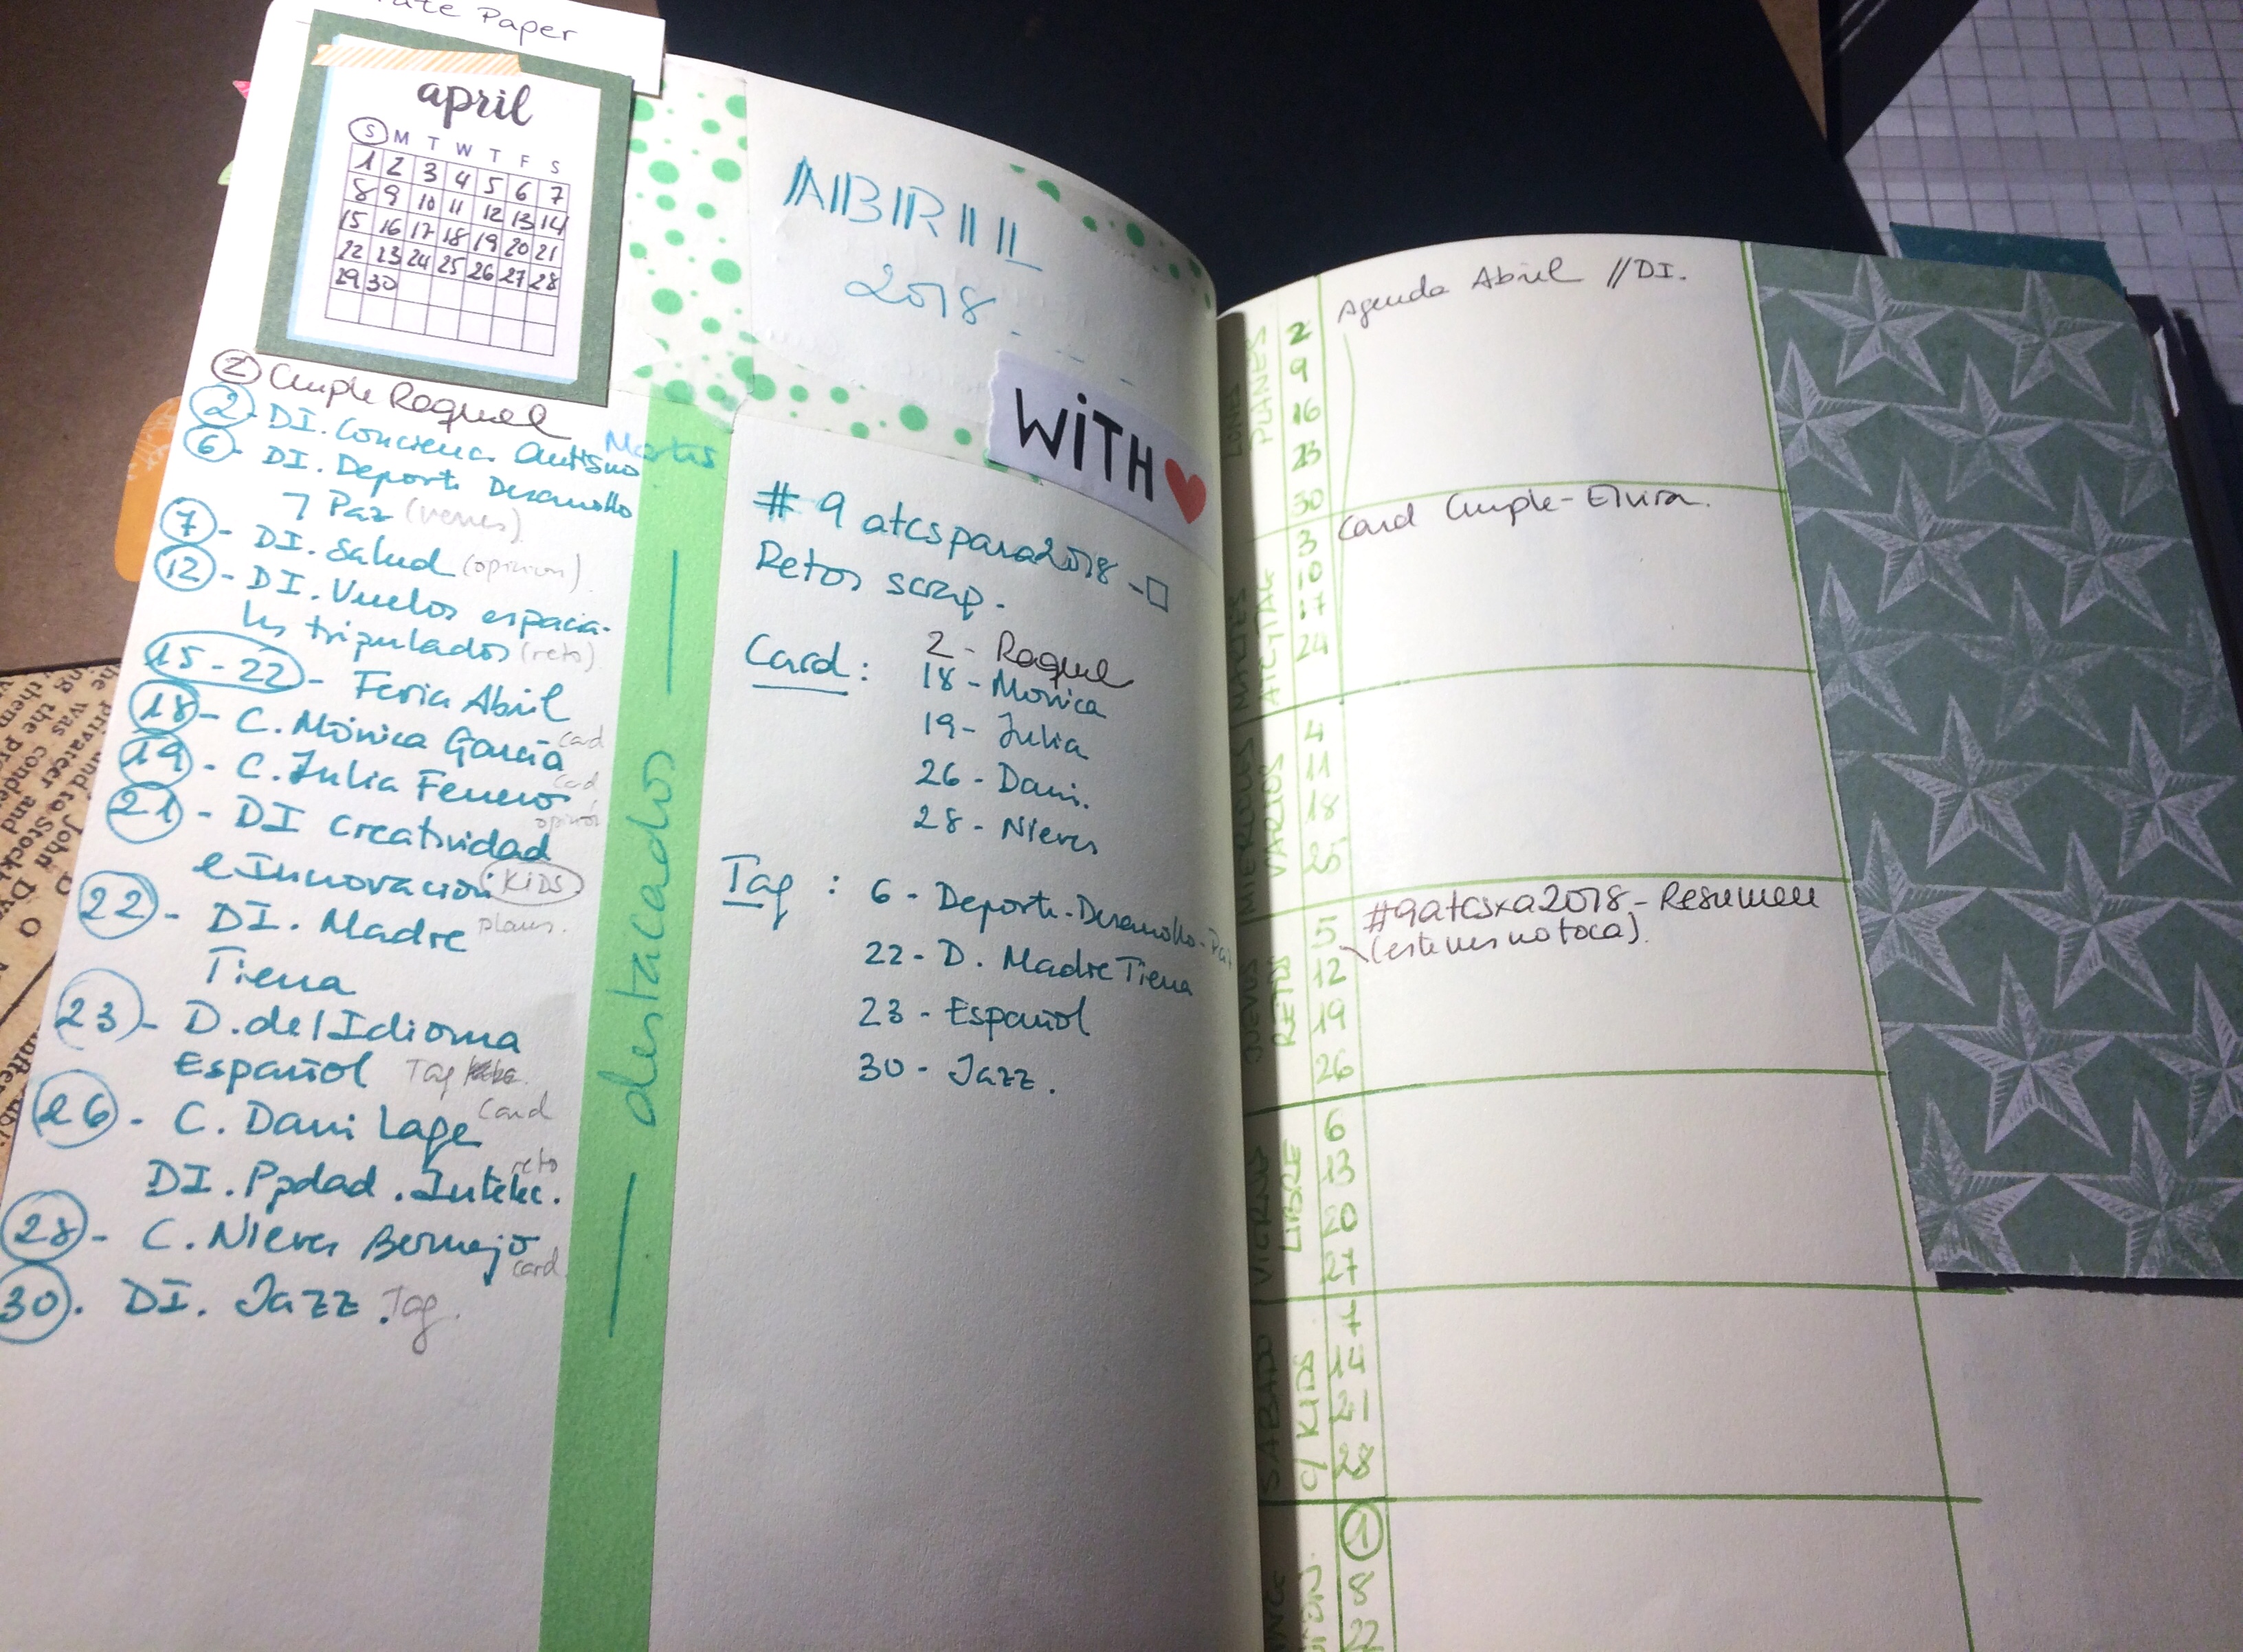 Paper
april
S M T W T F S
1 2 3 4 5 6 7
8 9 10 11 12 13 14
15 16 17 18 19 20 21
22 23 24 25 26 27 28
29 30
2 Cumple Raquel
2 - DI. Concienc. Autismo Martes
6 - DI. Deporte Desarrollo
y Paz (viernes)
7 - DI. Salud (opinion)
12 - DI. Vuelos espacia-
les tripulados (reto)
15 - 22 - Feria Abril
18 - C. Mónica García card
19 - C. Julia card
21 - DI Creatividad opinión
e Innovación KIDS
22 - DI. Madre planes.
Tierra
23 - D. del Idioma
Español Tag
26 - C. Dani Lage card
DI. Ppdad. Intelec. reto
28 - C. Nieves Bermejo card
30. DI. Jazz. Tag.
— destacados —
ABRIL
2018
WiTH
# 9 atcspara2018 -
Retos scrap.
Card : 2 - Raquel
18 - Monica
19 - Julia
26 - Dani.
28 - Nieves
Tag : 6 - Deporte-Desarrollo-Paz
22 - D. Madre Tierra
23 - Español
30 - Jazz.
LUNES
PLANES
2
9
16
23
30
Agenda Abril // DI.
MARTES
ATC/TAG
3
10
17
24
Card Cumple - Elvira.
MIERCOLES
VARIOS
4
11
18
25
JUEVES
RETOS
5
12
19
26
#9atcsxa2018 - Resumen
(este mes no toca).
VIERNES
LIBRE
6
13
20
27
SABADO
C/ KIDS
7
14
21
28
1
8
22